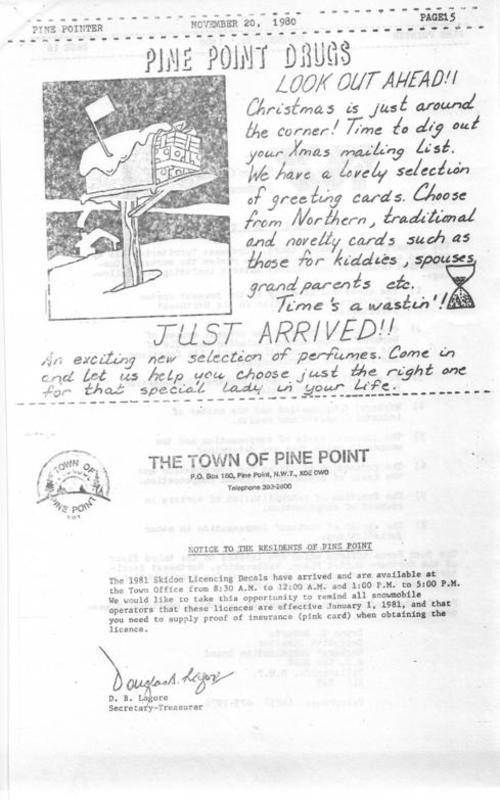 PINE POINTER NOVEMBER 20, 1980 PAGE15
PINE POINT DRUGS
LOOK OUT AHEAD!!
Christmas is just around
the corner! Time to dig out
your Xmas mailing list.
We have a lovely selection
of greeting cards. Choose
from Northern, traditional
and novelty cards such as
those for kiddies, spouses,
grandparents etc.
Time's a wastin'!
JUST ARRIVED!!
An exciting new selection of perfumes. Come in
and let us help you choose just the right one
for that special lady in your life.
TOWN OF
PINE POINT
THE TOWN OF PINE POINT
P.O. Box 160, Pine Point, N.W.T., X0E 0W0
Telephone 393-2600
NOTICE TO THE RESIDENTS OF PINE POINT
The 1981 Skidoo Licencing Decals have arrived and are available at
the Town Office from 8:30 A.M. to 12:00 A.M. and 1:00 P.M. to 5:00 P.M.
We would like to take this opportunity to remind all snowmobile
operators that these licences are effective January 1, 1981, and that
you need to supply proof of insurance (pink card) when obtaining the
licence.
Douglas B. Lagore
D. B. Lagore
Secretary-Treasurer